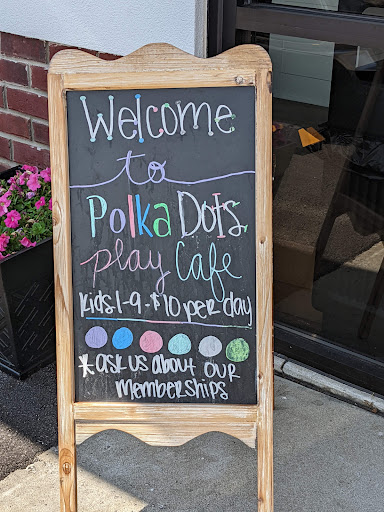 Welcome
to
Polka Dots
play Cafe
Kids 1-9 - $10 per day
* ask us about our
memberships